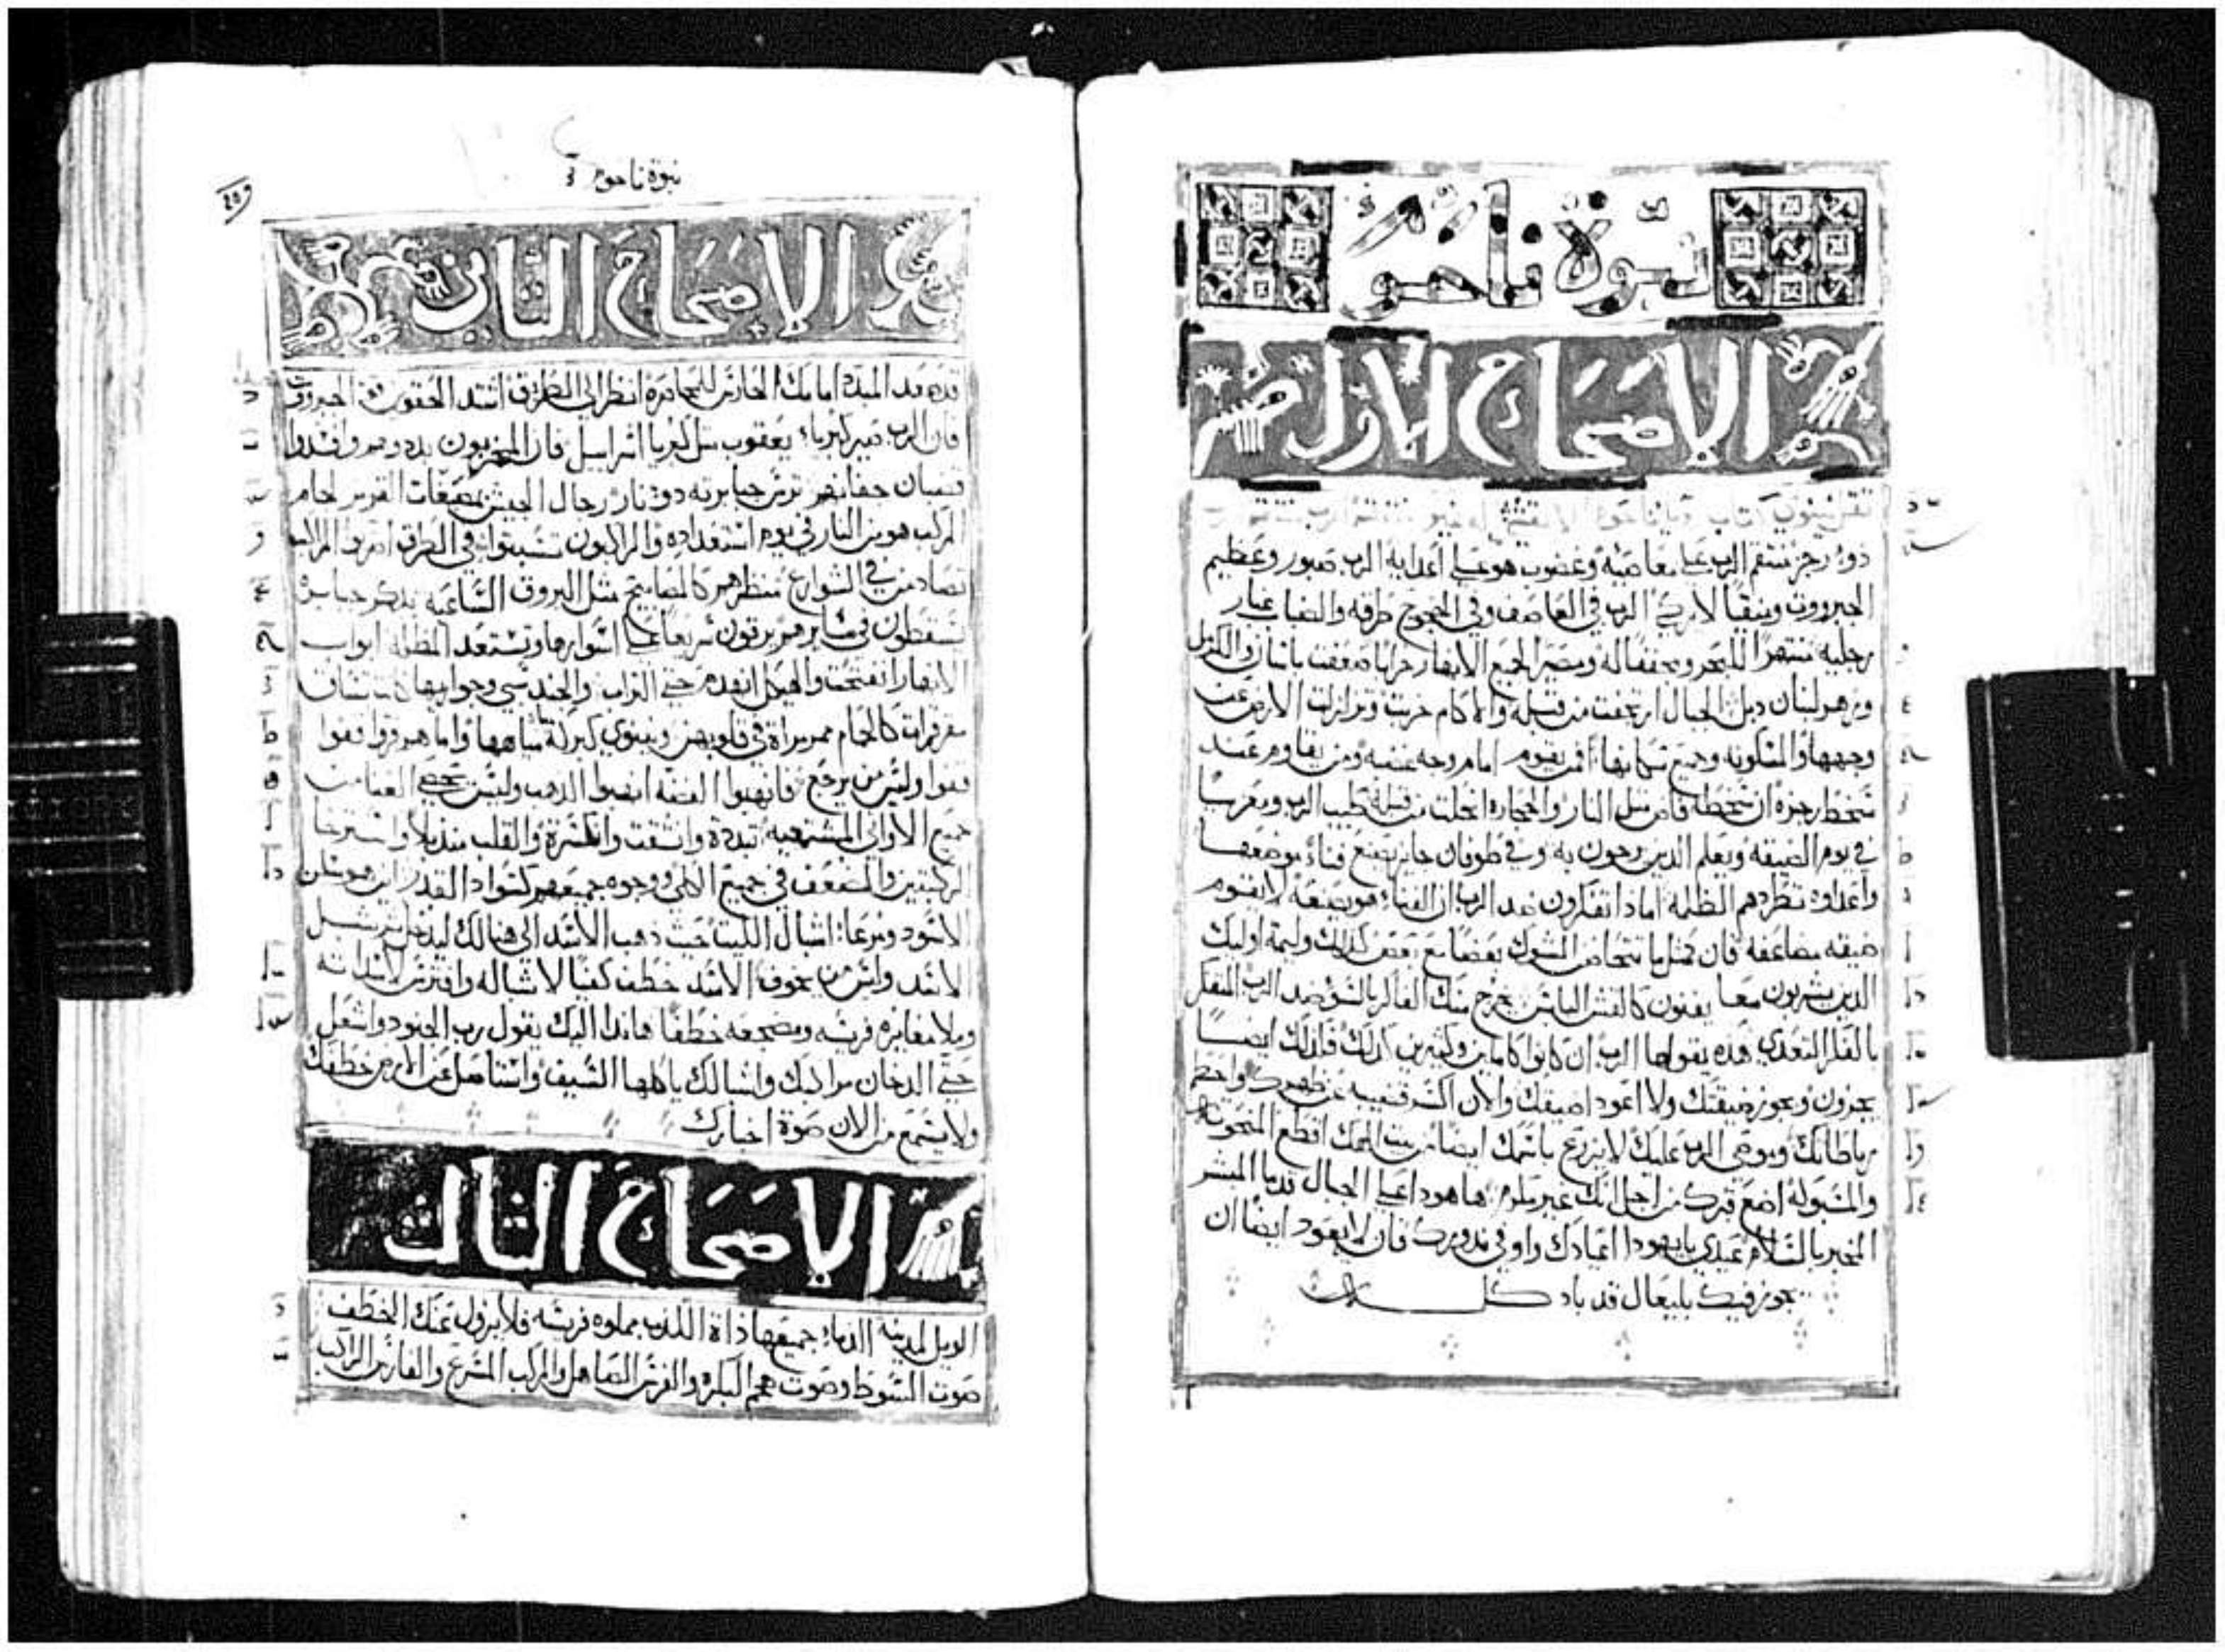 نبوة ناحوم
الاصحاح الاول
ذو رجز منتقم الرب على معاصيه وغضوب هو على اعدايه الرب صبور وعظيم
الجبروت وينقيا لا يزكي الرب في العاصف وفي العجوج طرقه والضباب غبار
رجليه منتهرا للبحر ومجففا له ومصير الجميع الانهار خرابا ضعفت باثان والكرمل
وزهر لبنان دبل الجبال ارتجفت من قبله والاكام خربت وتزلزلت الارض عن
وجهها والمسكونه وجميع سكانها فمن يقوم امام وجه غضبه ومن يقاوم عند
سخط رجزه ان سخطه فاض مثل النار والحجاره انحلت من قبله طيب الرب ومعزيا
في يوم الضيقه ويعلم الذين يرجون به وفي طوفان جايز يصنع فناء موضعها
واعداوه تطردهم الظلمه اماذا تفكرون ضد الرب ان الفناء هو يصنعه لا تقوم
ضيقه مضاعفه فان كمثل ما تتحاضن الشوك بعضا مع بعض كذلك وليمة اوليك
الذين يشربون معا يفنون كالقش اليابس يخرج منك الفاكر بالسؤ ضد الرب المفكر
بالفكر التعدي هذه يقولها الرب ان كانوا كاملين وكثيرين كذلك فكذلك ايضا
يجزون ويجوز ضيقتك ولا اعود اضيقك والان اكسر قضيبه عن ظهرك واحطم
رباطاتك ويوصي الرب عليك لا يزرع باسمك ايضا من بيت الهك اقطع المنحوته
والمسبوكه اضع قبرك من اجل انك غير مكرم ها هوذا على الجبال قدما المبشر
المخبر بالسلام عيدي يا يهودا اعيادك واوفي ندورك فان لا يعود ايضا ان
يجوز فيك بليعال قد باد كله
نبوة ناحوم
الاصحاح الثاني
قد صعد المبدد امامك الحارس للمحاصرة انظر الى الطريق اشدد الحقوين قو الجبروت
فان الرب صير كبرياء يعقوب مثل كبريا اسراييل فان المخربون بددوهم وافسدوا
قضبان حفانهم ترس جبابرته ذو نار رجال الجيش
المركب هو من النار في يوم استعداده والراكبون تسبتوا في الطرق
تصادمن في الشوارع منظرهن كالمصابيح مثل البروق الساعيه يذكر جبابرة
يسقطون في مسايرهم يرقون سريعا على اسوارها وتستعد المظله ابواب
الانهار انفتحت والهيكل انهدم حتى التراب والجند سبي وجواريها
مقرقرات كالحمام ممرمراة في قلوبهن ونينوي كبركة مياهها واما هم فروا قفوا
قفوا وليس من يرجع فانهبوا الفضة انهبوا الذهب وليس تحصي الغنا من
جميع الاواني المشتهيه تبددة وانشقت وانكسرة والقلب منذبلا واسترخا
الركبتين والضعف في جميع الكلي ووجوه جميعهم كسواد القدر اين هو مسكن
الاسود ومرعا اشبال الليث حيث ذهب الاسد الى هنالك ليدخل ثم شبل
الاسد وليس من يخوف الاسد خطف كفيا لاشباله وافترس لاسداته
وملا مغايره فريسه ومضجعه خطفا هاندا اليك يقول رب الجنود واشعل
حتى الدخان مراكبك واشبالك ياكلها السيف واستاصل عن الارض خطفك
ولا يسمع من الان صوة اخبارك
الاصحاح الثالث
الويل لمدينه الدماء جميعها ذاة الكذب مملوه فريسه فلا يزول عنك الخطف
صوت السوط وصوت هجم البكره والفرس الصاهل والمركب المسرع والفارس الراكب